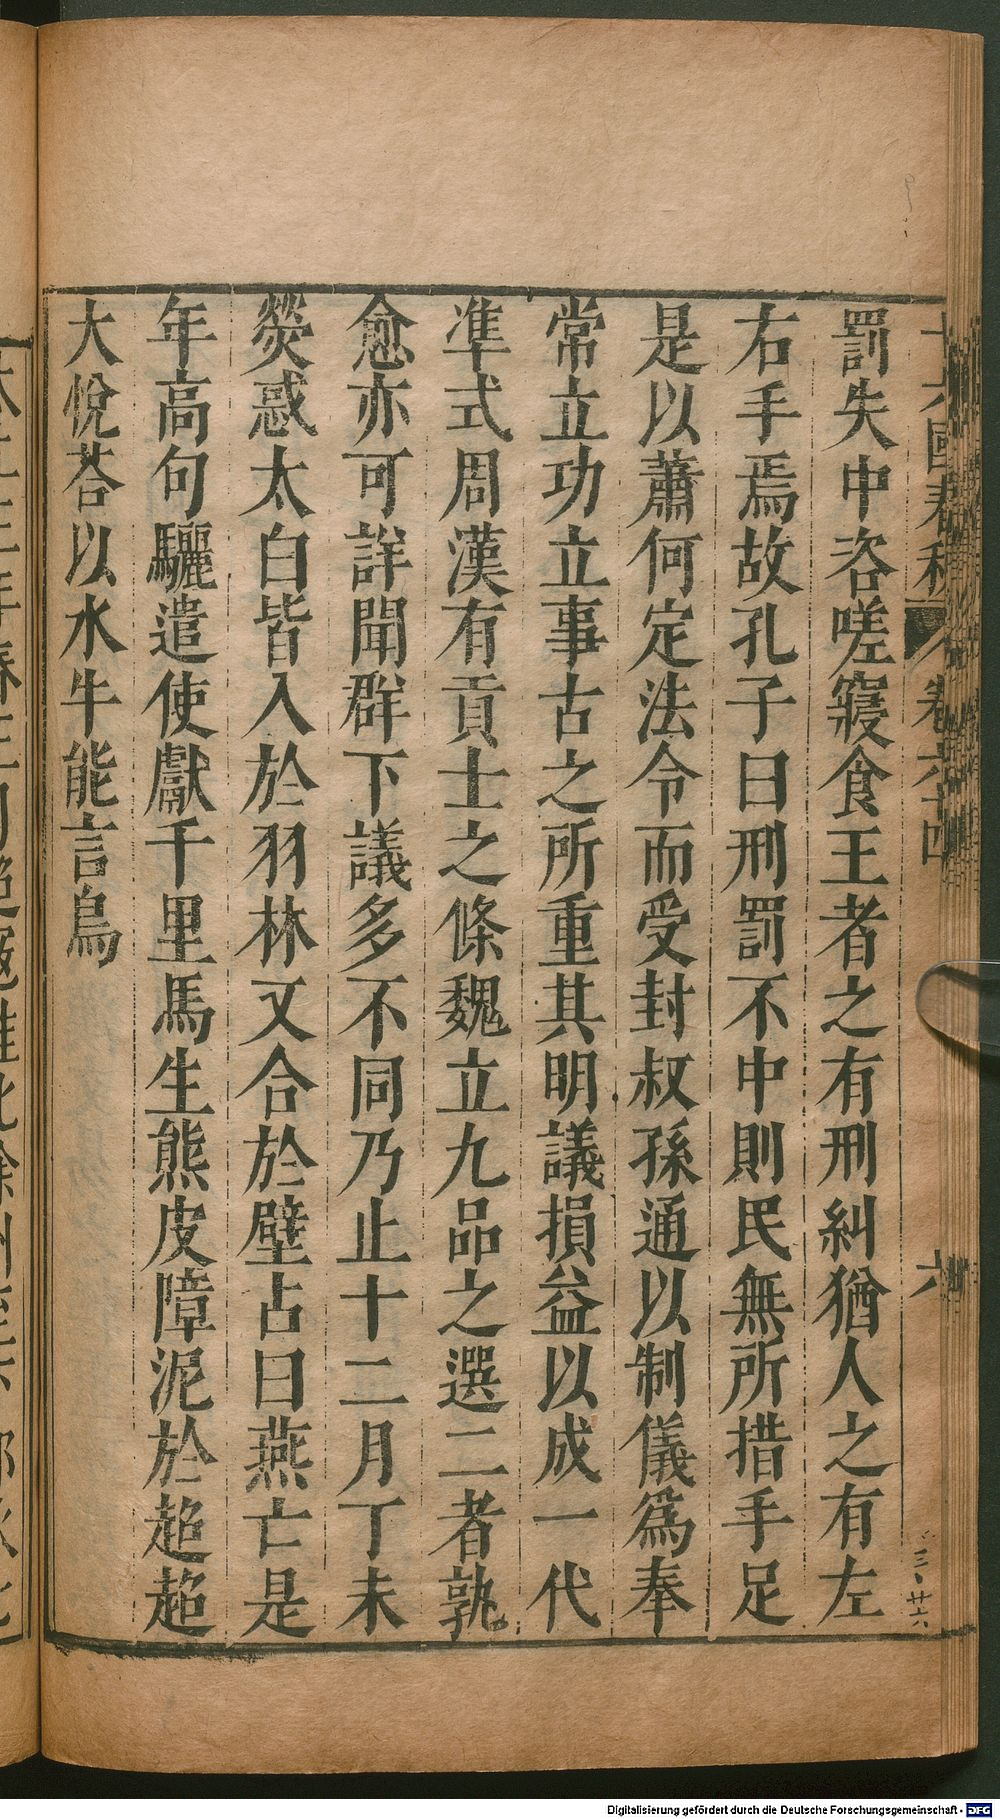 十六國春秋 卷六十四 六
罰失中咨嗟寢食王者之有刑糾猶人之有左
右手焉故孔子曰刑罰不中則民無所措手足
是以蕭何定法令而受封叔孫通以制儀爲奉
常立功立事古之所重其明議損益以成一代
準式周漢有貢士之條魏立九品之選二者孰
愈亦可詳聞群下議多不同乃止十二月丁未
熒惑太白皆入於羽林又合於壁占曰燕亡是
年高句驪遣使獻千里馬生熊皮障泥於超超
大悅荅以水牛能言鳥
Digitalisierung gefördert durch die Deutsche Forschungsgemeinschaft - DFG